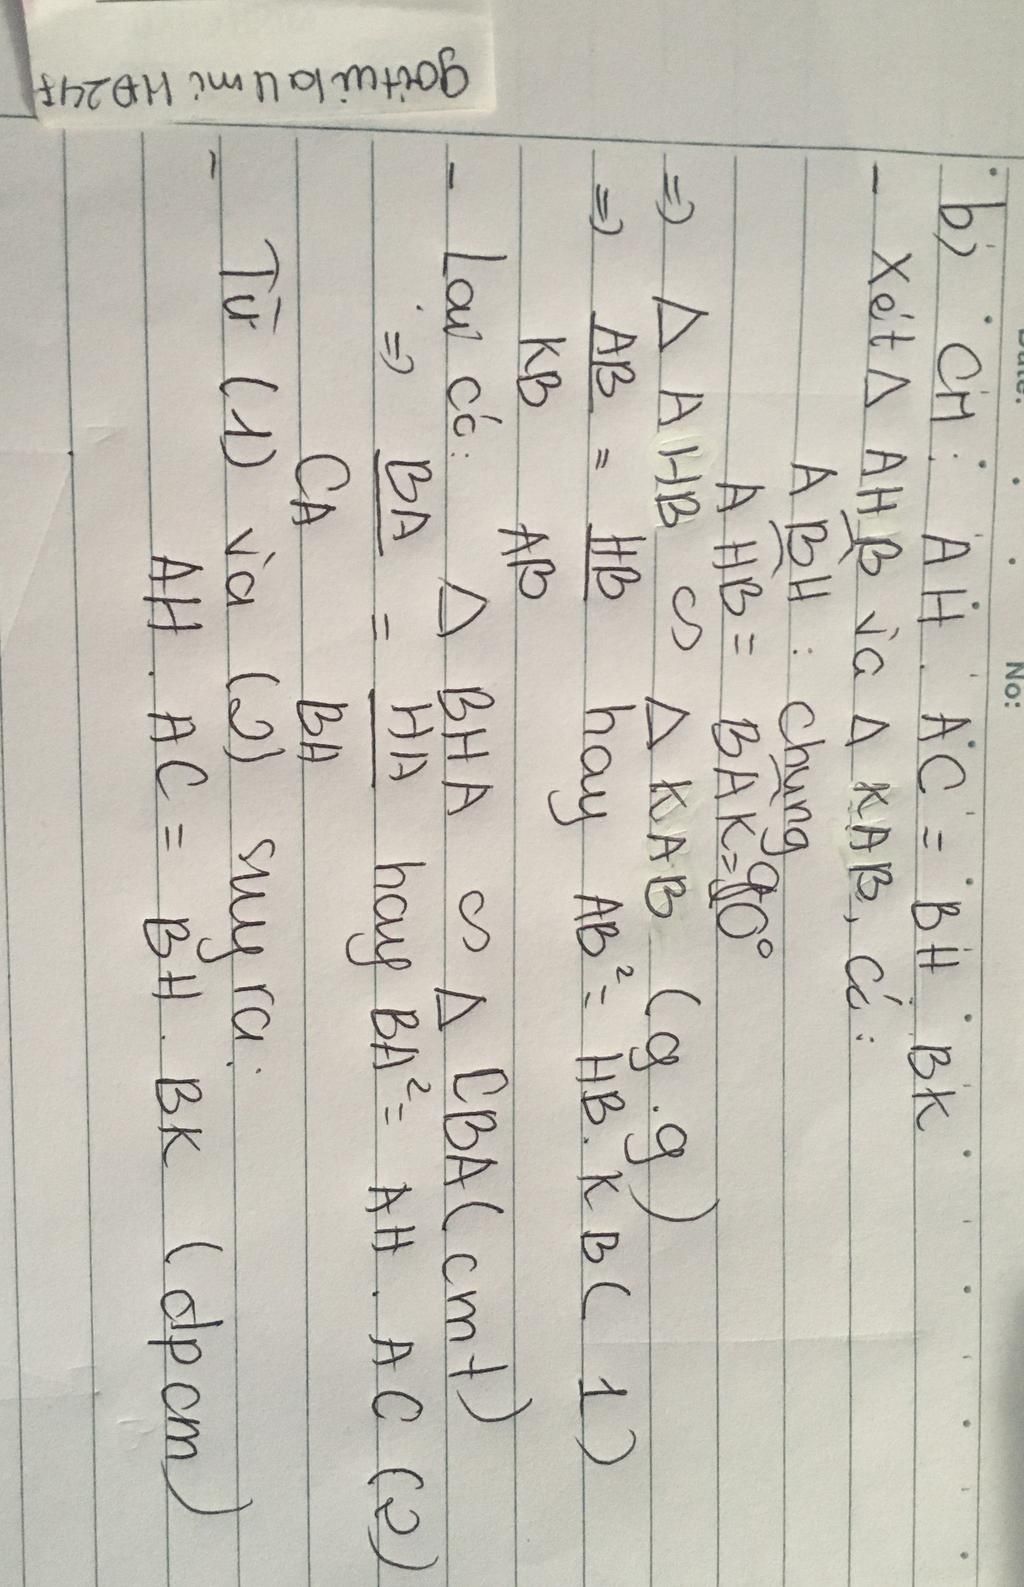 goituilaUmi HĐ247
Date:
No:
b) CM: AH. AC = BH BK
- Xét Δ AHB và Δ KAB, có:
ABH: chung
AHB = BAK = 90°
=> Δ AHB ∽ Δ KAB (g.g)
=> AB/KB = HB/AB hay AB² = HB. KB (1)
- Lại có: Δ BHA ∽ Δ CBA (cmt)
=> BA/CA = HA/BA hay BA² = AH. AC (2)
- Từ (1) và (2) suy ra:
AH. AC = BH. BK (đpcm)